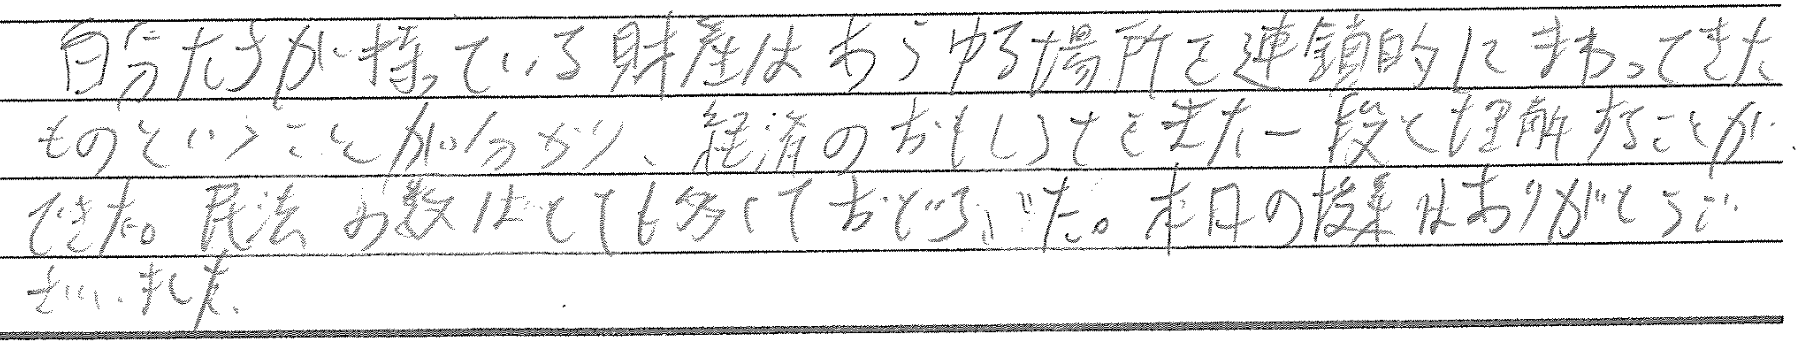 自分たちが持っている財産はあらゆる場所を連鎖的にまわってきた
ものということが分かり、経済のおもしろさをまた一段と理解することが
できた。民法の数はとても多くておどろいた。本日の授業はありがとうご
ざいました。